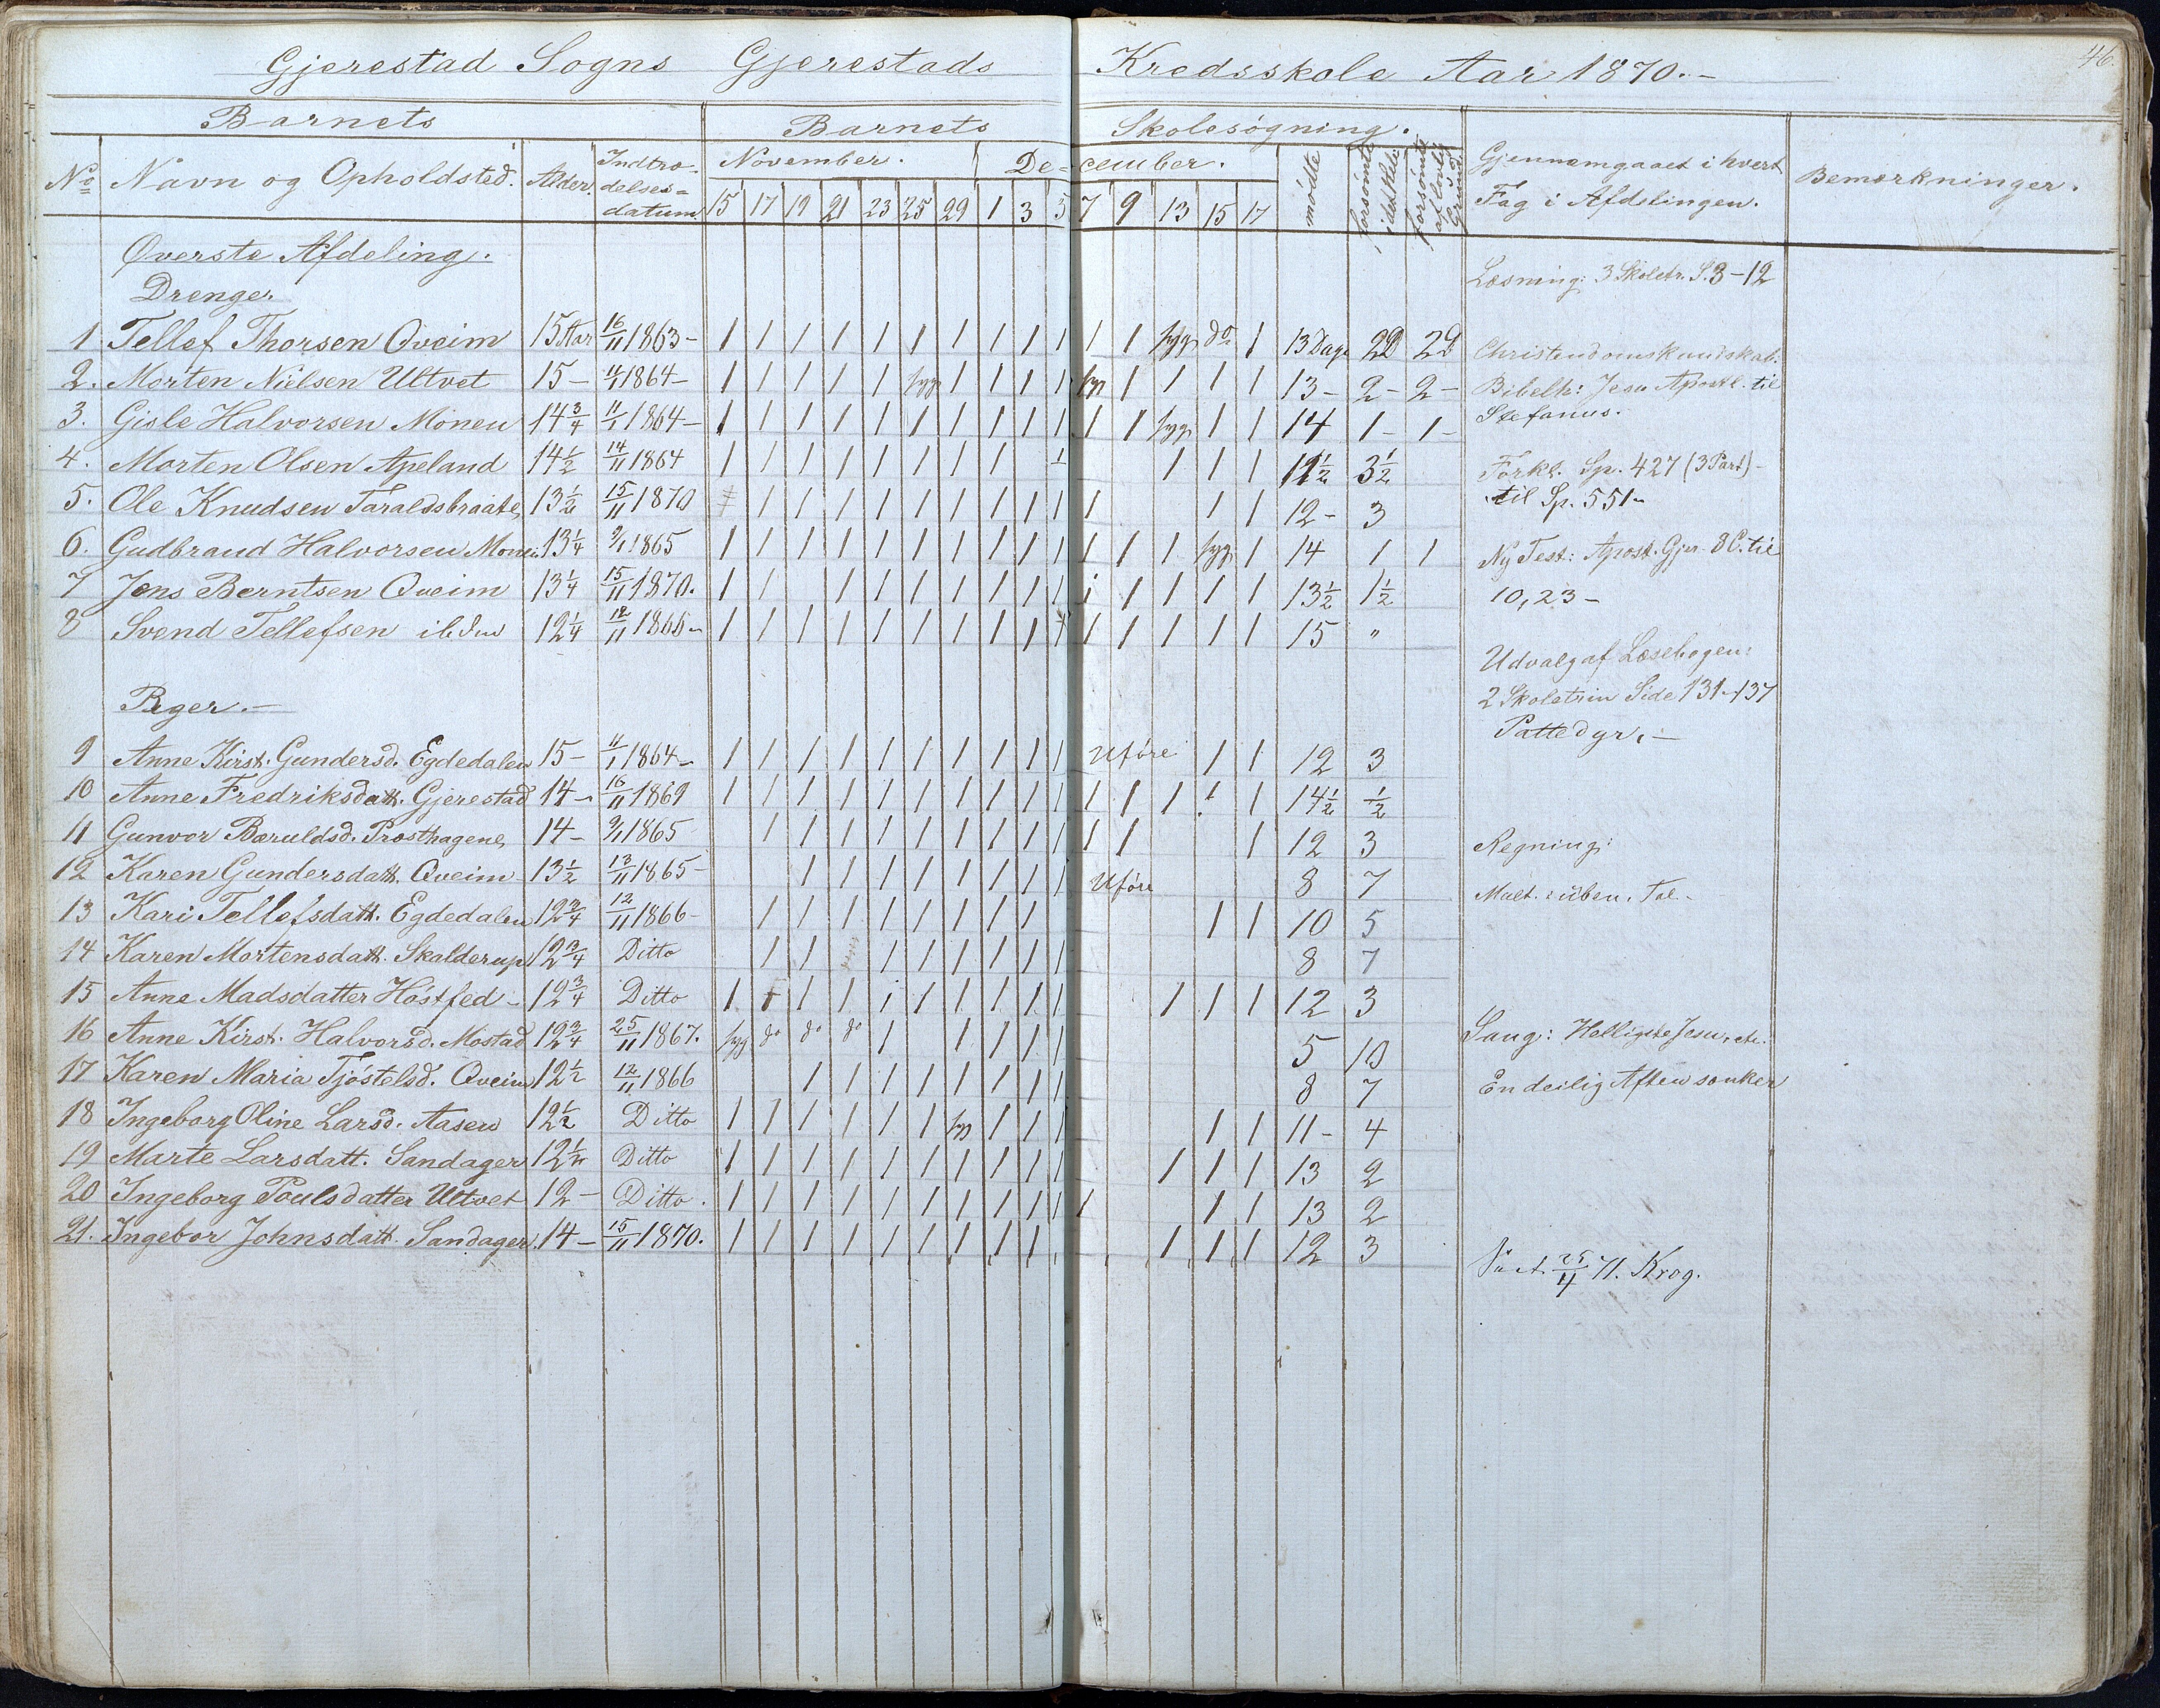 46.
Gjerestad Sogns Gjerestads Kredsskole Aar 1870.-
Barnets Barnets Skolesøgning.
No Navn og Opholdsted. Alder. Indtrædelses=datum November. December. mødte forsømte i det Hele forsømte af lovlig Grund Gjennemgaaet i hvert Fag i Afdelingen. Bemærkninger.
15 17 19 21 23 25 29 1 3 5 7 9 13 15 17
Øverste Afdeling.
Drenge.
1. Tellef Thorsen Qveim 15 Aar 16/11 1863- 1 1 1 1 1 1 1 1 1 1 1 1 syg do 1 13 Dage 2D 2D
2. Morten Nielsen Ultvet 15 - 11/1 1864- 1 1 1 1 1 syg 1 1 1 1 syg 1 1 1 1 13 - 2 - 2 -
3. Gisle Halvorsen Monen 14 3/4 11/1 1864- 1 1 1 1 1 1 1 1 1 1 1 1 syg 1 1 14 1 - 1 -
4. Morten Olsen Apeland 14 1/2 14/11 1864 1 1 1 1 1 1 1 1 1/2 1 1 1 11 1/2 3 1/2
5. Ole Knudsen Taraldsbraate 13 1/2 15/11 1870 1 1 1 1 1 1 1 1 1 1 1 1 12 - 3
6. Gudbrand Halvorsen Monen 13 1/4 9/1 1865 1 1 1 1 1 1 1 1 1 1 1 1 1 syg 1 14 1 1
7 Jens Berntsen Qveim 13 1/4 15/11 1870. 1 1 1 1 1 1 1 1 1 1 1 1 1 1 13 1/2 1 1/2
8 Svend Tellefsen ibidm 12 1/4 12/11 1866- 1 1 1 1 1 1 1 1 1 1 1 1 1 1 1 15 "
Piger.-
9 Anne Kirst. Gundersd. Egdedalen 15 - 11/1 1864- 1 1 1 1 1 1 1 1 1 1 Uføre 1 1 12 3
10 Anne Fredriksdatt. Gjerestad 14 - 16/11 1869 1 1 1 1 1 1 1 1 1 1 1 1 1 1/2 1 14 1/2 1/2
11 Gunvor Bæruldsd. Præsthagene 14 - 9/1 1865 1 1 1 1 1 1 1 1 1 1 1 1 12 3
12 Karen Gundersdatt. Qveim 13 1/2 13/11 1865- 1 1 1 1 1 1 1 1 Uføre 8 7
13 Kari Tellefsdatt. Egdedalen 12 3/4 12/11 1866- 1 1 1 1 1 1 1 1 1 1 10 5
14 Karen Mortensdatt. Skalderup 12 3/4 Ditto 1 1 1 1 1 1 1 1 8 7
15 Anne Madsdatter Høstfed - 12 3/4 Ditto 1 1 1 1 1 1 1 1 1 1 1 1 1 12 3
16 Anne Kirst. Halvorsd. Mostad 12 3/4 25/11 1867. syg do do do 1 1 1 1 1 5 10
17 Karen Maria Tjøstelsd. Qveim 12 1/2 12/11 1866 1 1 1 1 1 1 1 1 8 7
18 Ingeborg Oline Larsd. Aasen 12 1/2 Ditto 1 1 1 1 1 1 syg 1 1 1 1 1 11 - 4
19 Marte Larsdatt. Sandager 12 1/4 Ditto 1 1 1 1 1 1 1 1 1 1 1 1 1 13 2
20 Ingeborg Poulsdatter Ultvet 12 - Ditto. 1 1 1 1 1 1 1 1 1 1 1 1 1 13 2
21. Ingebor Johnsdatt. Sandager. 14 - 15/11 1870. 1 1 1 1 1 1 1 1 1 1 1 1 12 3
Læsning: 3 Skoletr. S. 3-12
Christendomskundskab:
Bibelh: Jesu Apostl. til
Stefanus.
Forkl. Sp. 427 (3 Part) -
til Sp. 551-
Ny Test: Apost. Gjer. 8 C. til
10, 23 -
Udvalg af Læsebogen:
2 Skoletrin Side 131-137
Pattedyr. -
Regning:
Mult. i üben. Tal.
Sang: Helligste Jesu, etc.
En deilig Aften sænker
71. Krog.